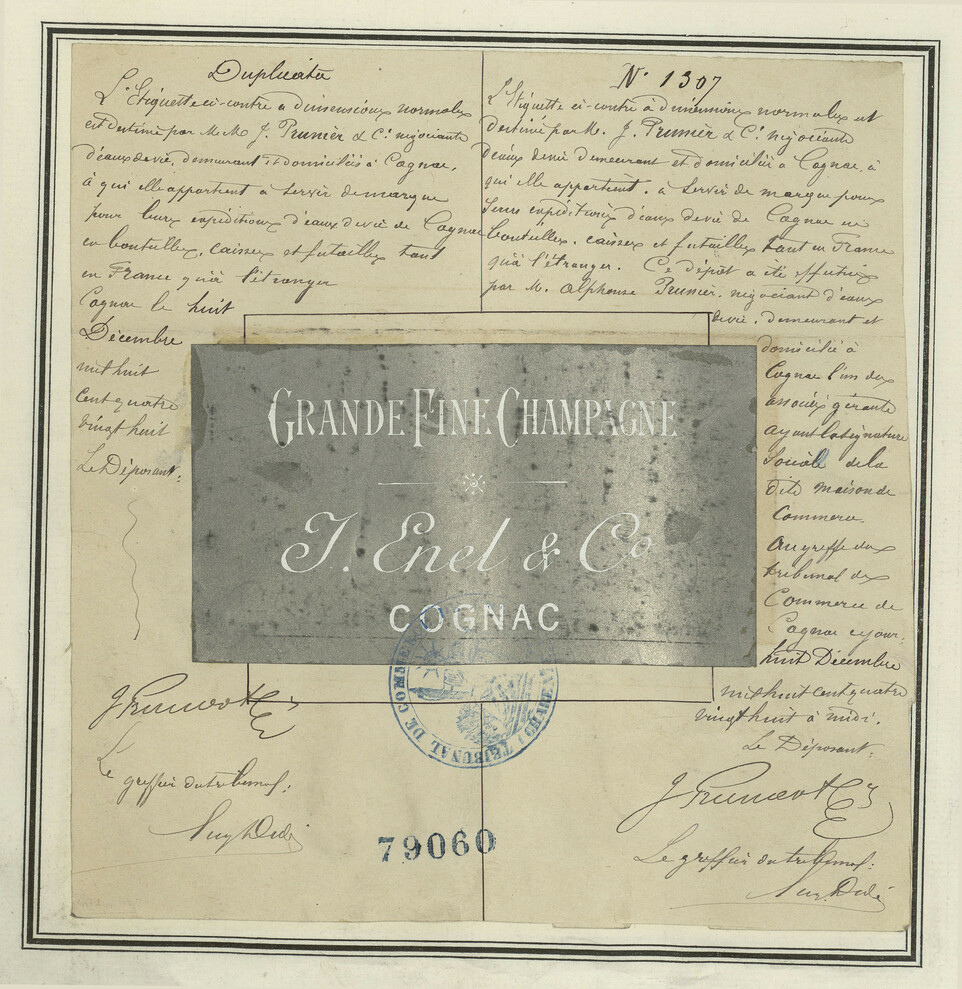 Duplicata
L'Etiquette ci-contre a dimensions normales
est destinée par M.M. J. Prunier & Cie négociants
d'eaux de vie, demeurant et domiciliés à Cognac,
à qui elle appartient à servir de marque
pour leurs expéditions d'eaux de vie de Cognac
en bouteilles, caisses et futailles tant
en France qu'à l'étranger
Cognac le huit
Décembre
mil huit
cent quatre
vingt huit
Le Déposant:
J Prunier & Cie
Le
greffier du tribunal:
N° 1307
L'Etiquette ci-contre à dimensions normales est
destiné par M. J. Prunier & Cie négociants
d'eaux de vie demeurant et domiciliés à Cognac, à
qui elle appartient, à servir de marque pour
leurs expéditions d'eaux de vie de Cognac en
bouteilles, caisses et futailles tant en France
qu'à l'étranger. Ce dépôt a été effectué
par M. Alphonse Prunier, négociant d'eaux
de vie, demeurant et
domicilié à
Cognac l'un des
associés gérants
ayant la signature
sociale de la
dite maison de
Commerce.
Au greffe du
tribunal de
Commerce de
Cognac ce jour:
huit Décembre
mil huit cent quatre
vingt huit à midi.
Le Déposant:
J Prunier & Cie
Le greffier du tribunal:
GRANDE FINE CHAMPAGNE
J. Enel & Co
COGNAC
TRIBUNAL DE COMMERCE
79060